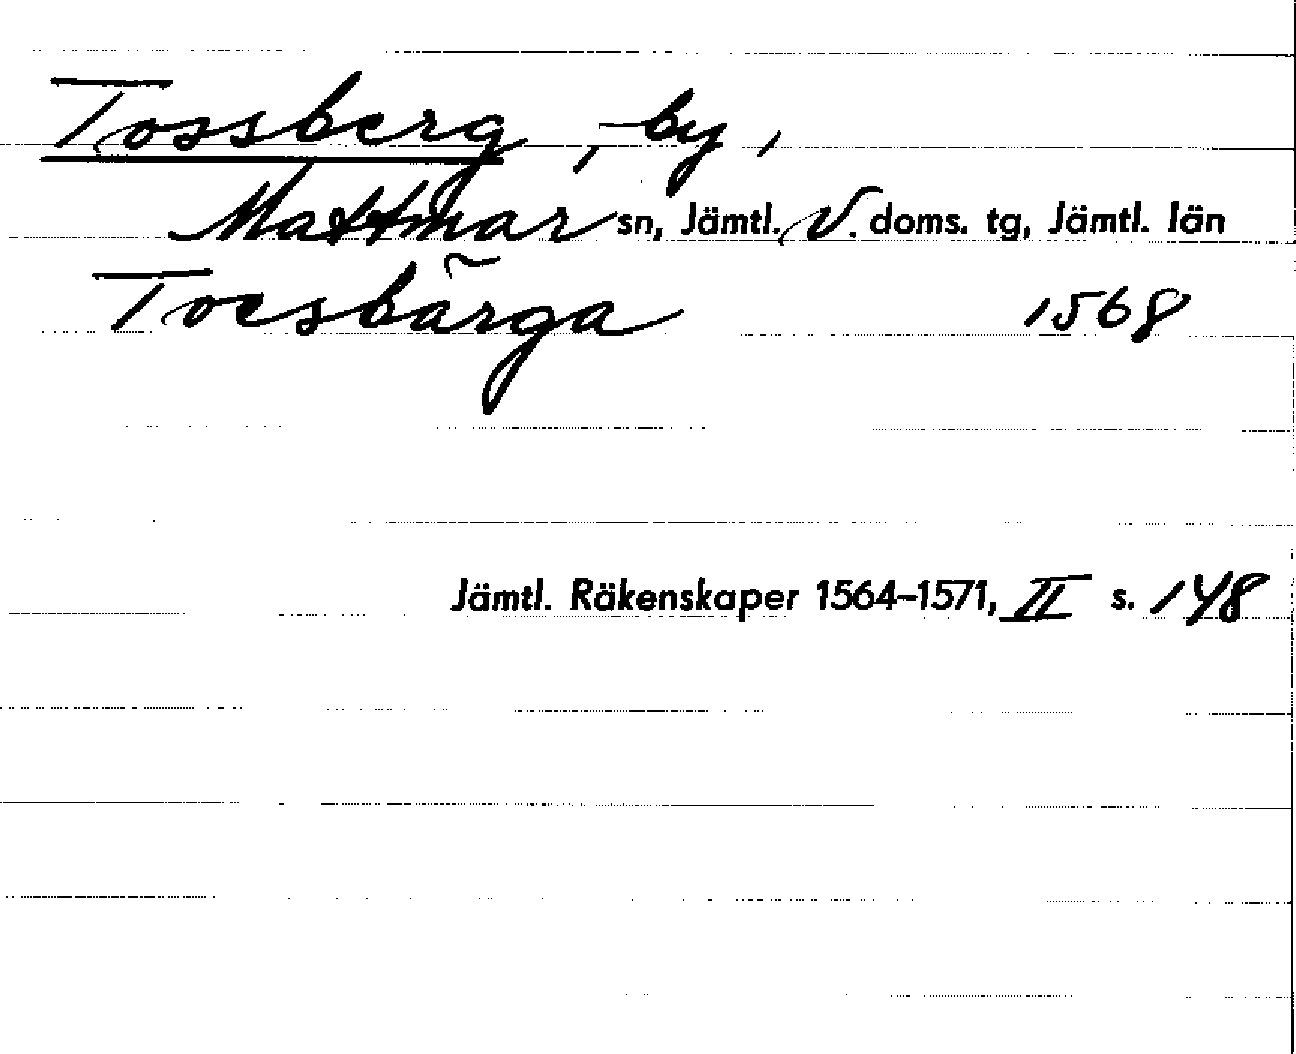 Tossberg, by,
Mattmar sn, Jämtl. V. doms. tg, Jämtl. län
Toesbärga 1568
Jämtl. Räkenskaper 1564–1571, II s. 148